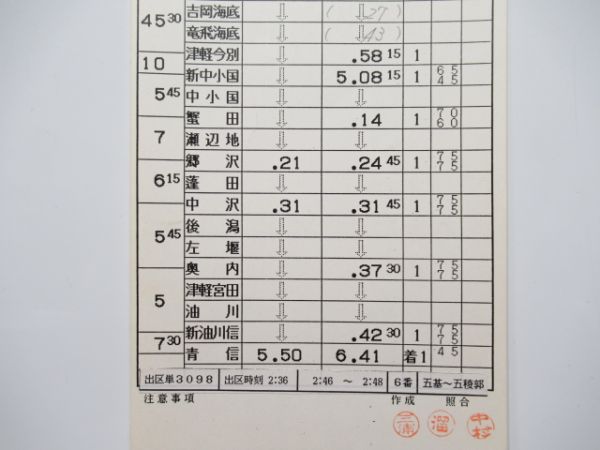 45 30
吉岡海底 ⇩ ( ⇩27 )
竜飛海底 ⇩ ( ⇩43 )
津軽今別 ⇩ .58 15 1
10
新中小国 ⇩ 5.08 15 1 65 45
5 45
中小国 ⇩ ⇩
蟹田 ⇩ .14 1 70 60
7
瀬辺地 ⇩ ⇩
郷沢 .21 .24 45 1 75 75
6 15
蓬田 ⇩ ⇩
中沢 .31 .31 45 1 75 75
後潟 ⇩ ⇩
5 45
左堰 ⇩ ⇩
奥内 ⇩ .37 30 1 75 75
津軽宮田 ⇩ ⇩
5
油川 ⇩ ⇩
新油川信 ⇩ .42 30 1 75 75
7 30
青信 5.50 6.41 着1 45
出区単3098 出区時刻 2:36 2:46 ～ 2:48 6番 五基～五稜郭
注意事項 作成 照合
三浦 溜 中村